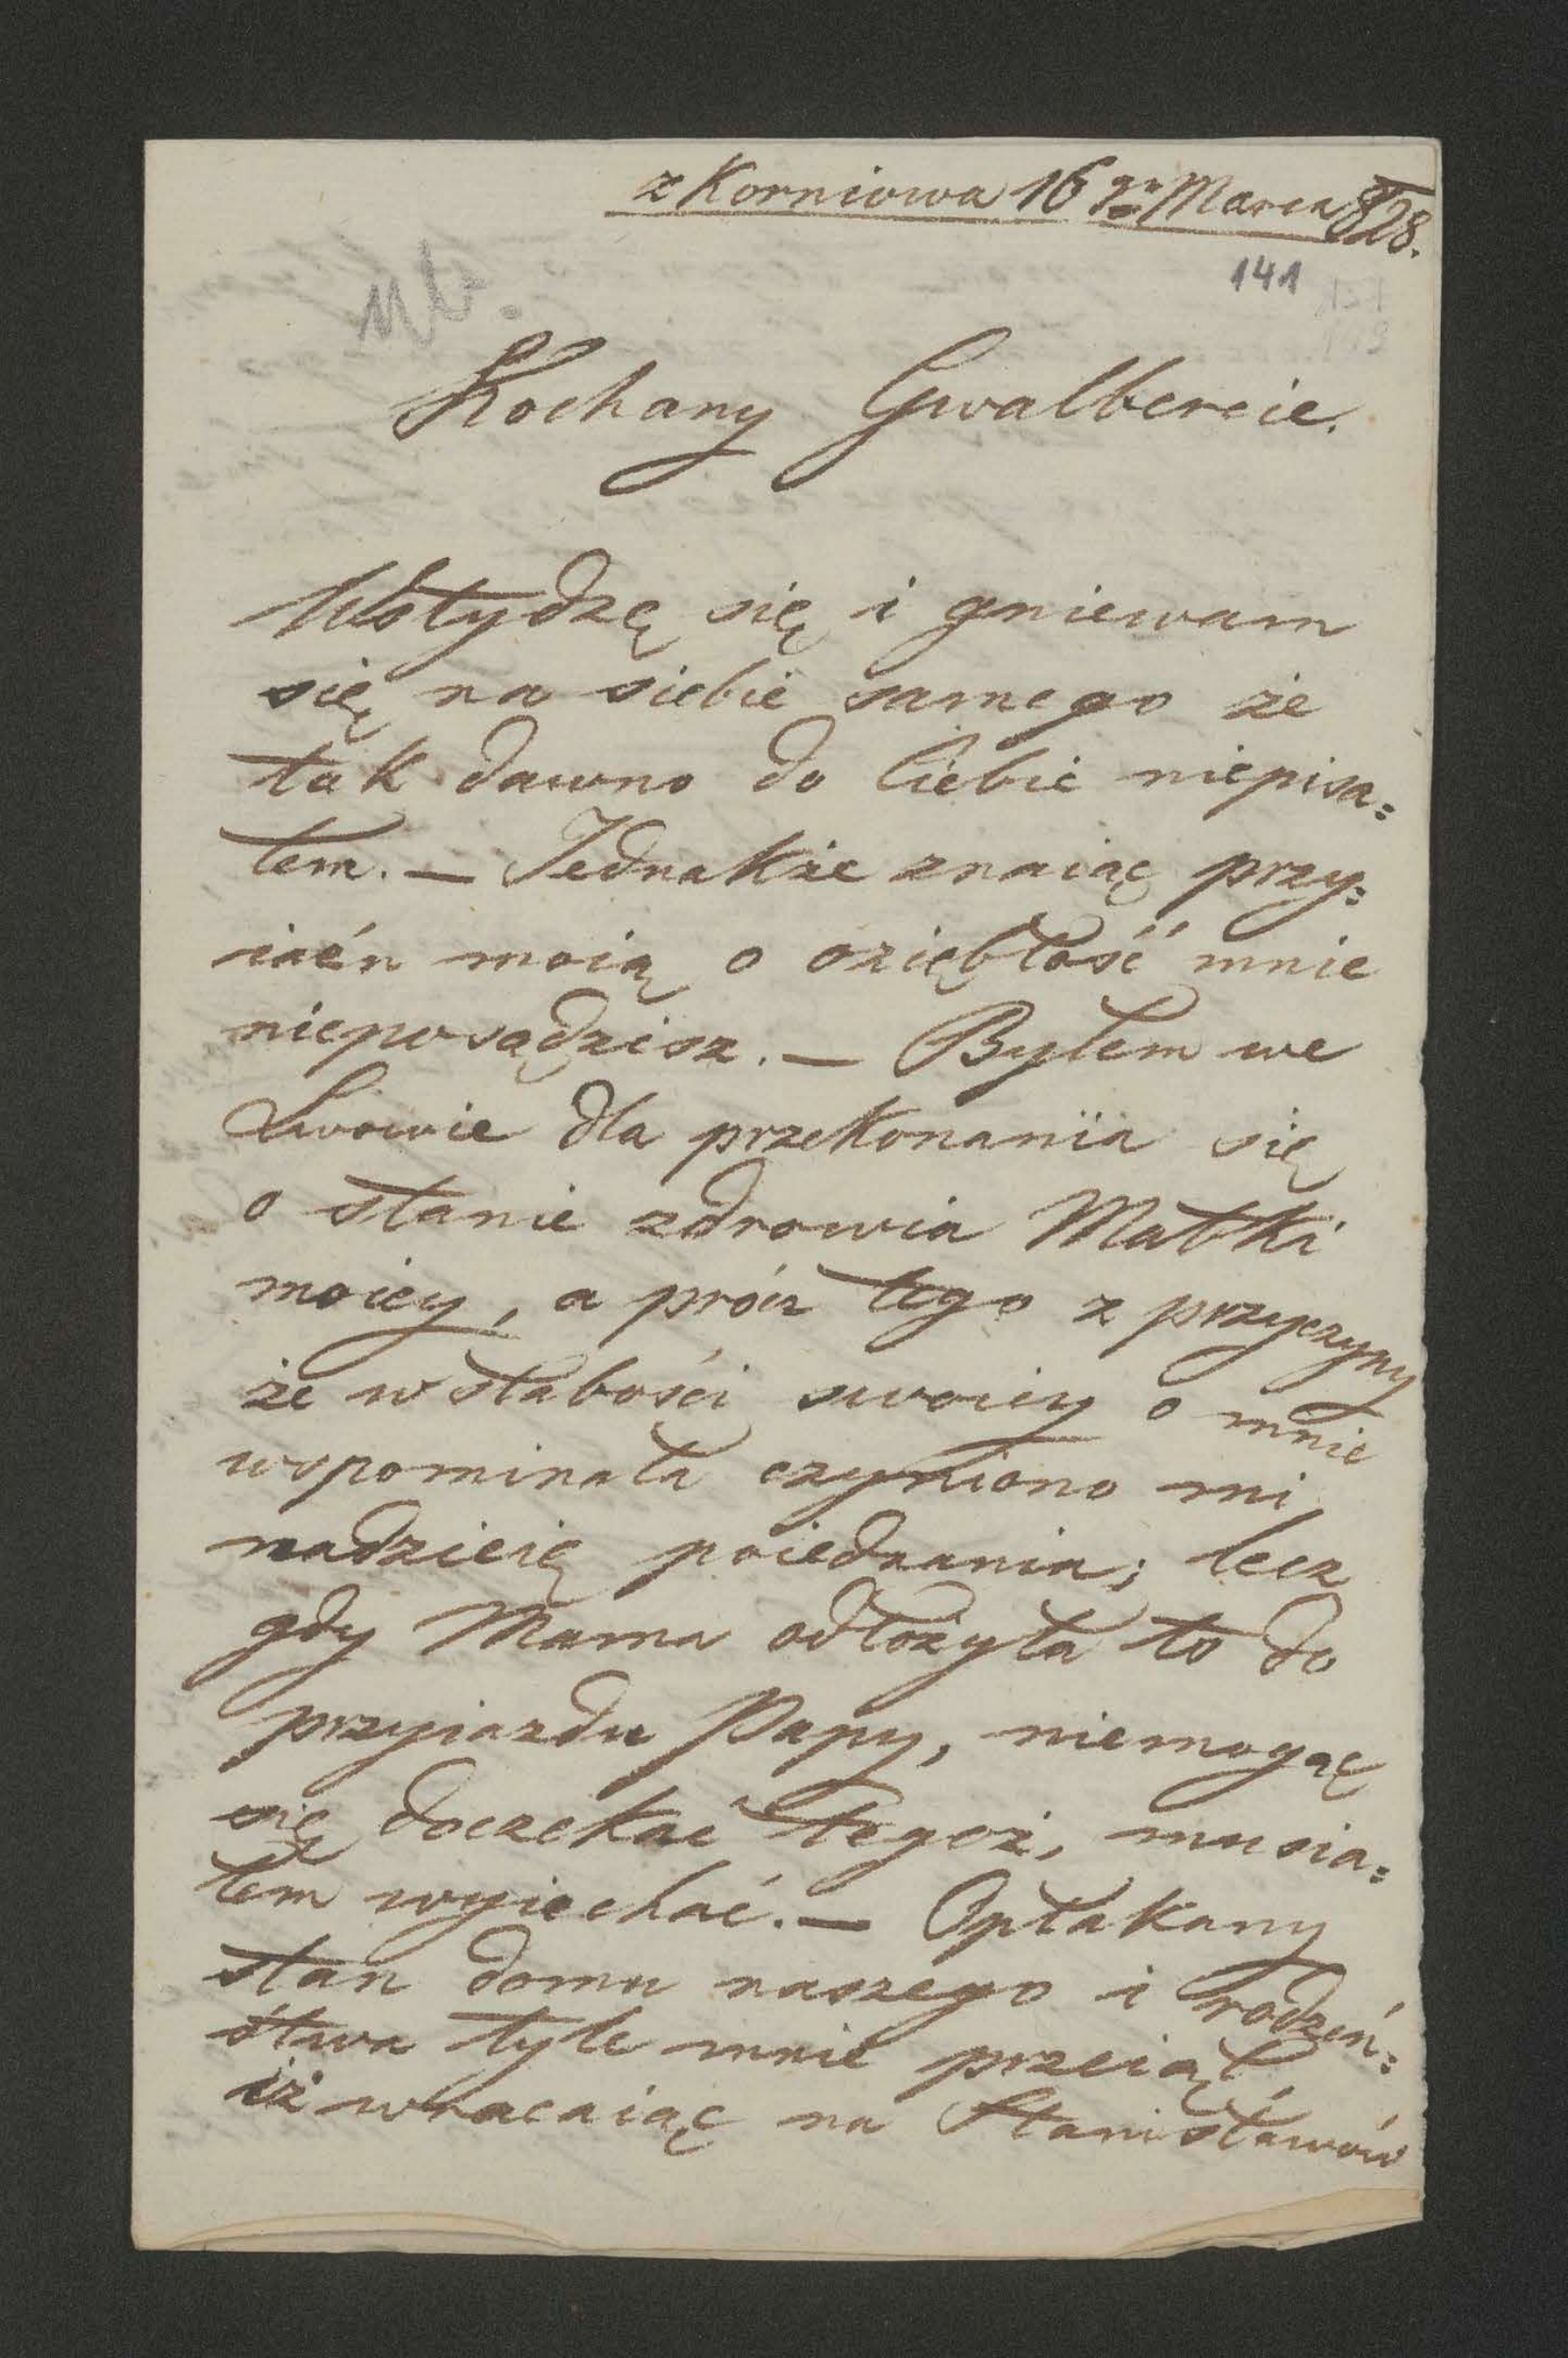 z Korniowa 16go Marca 828.
141
Kochany Gwalbercie.
Wstydzę się i gniewam
się na siebie samego że
tak dawno do Ciebie niepisa=
łem. — Jednakże znaiąc przy=
iaźń moią o oziębłość mnie
nieposądzisz. — Byłem we
Lwowie dla przekonania się
o stanie zdrowia Matki
moiey, a prócz tego z przyczyny
że w słabości swoiey o mnie
wspominała czyniono mi
nadzieię poiednania; lecz
gdy Mama odłożyła to do
przyiazdu Papy, niemogąc
się doczekać tegoż, musia=
łem wyiechać. — Opłakany
stan domu naszego i rodzeń=
stwa tyle mnie przeiął
iż wracaiąc na Stanisławów